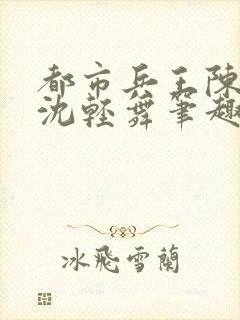 都市兵王陳
沈輕舞筆趣
冰飛雪蘭